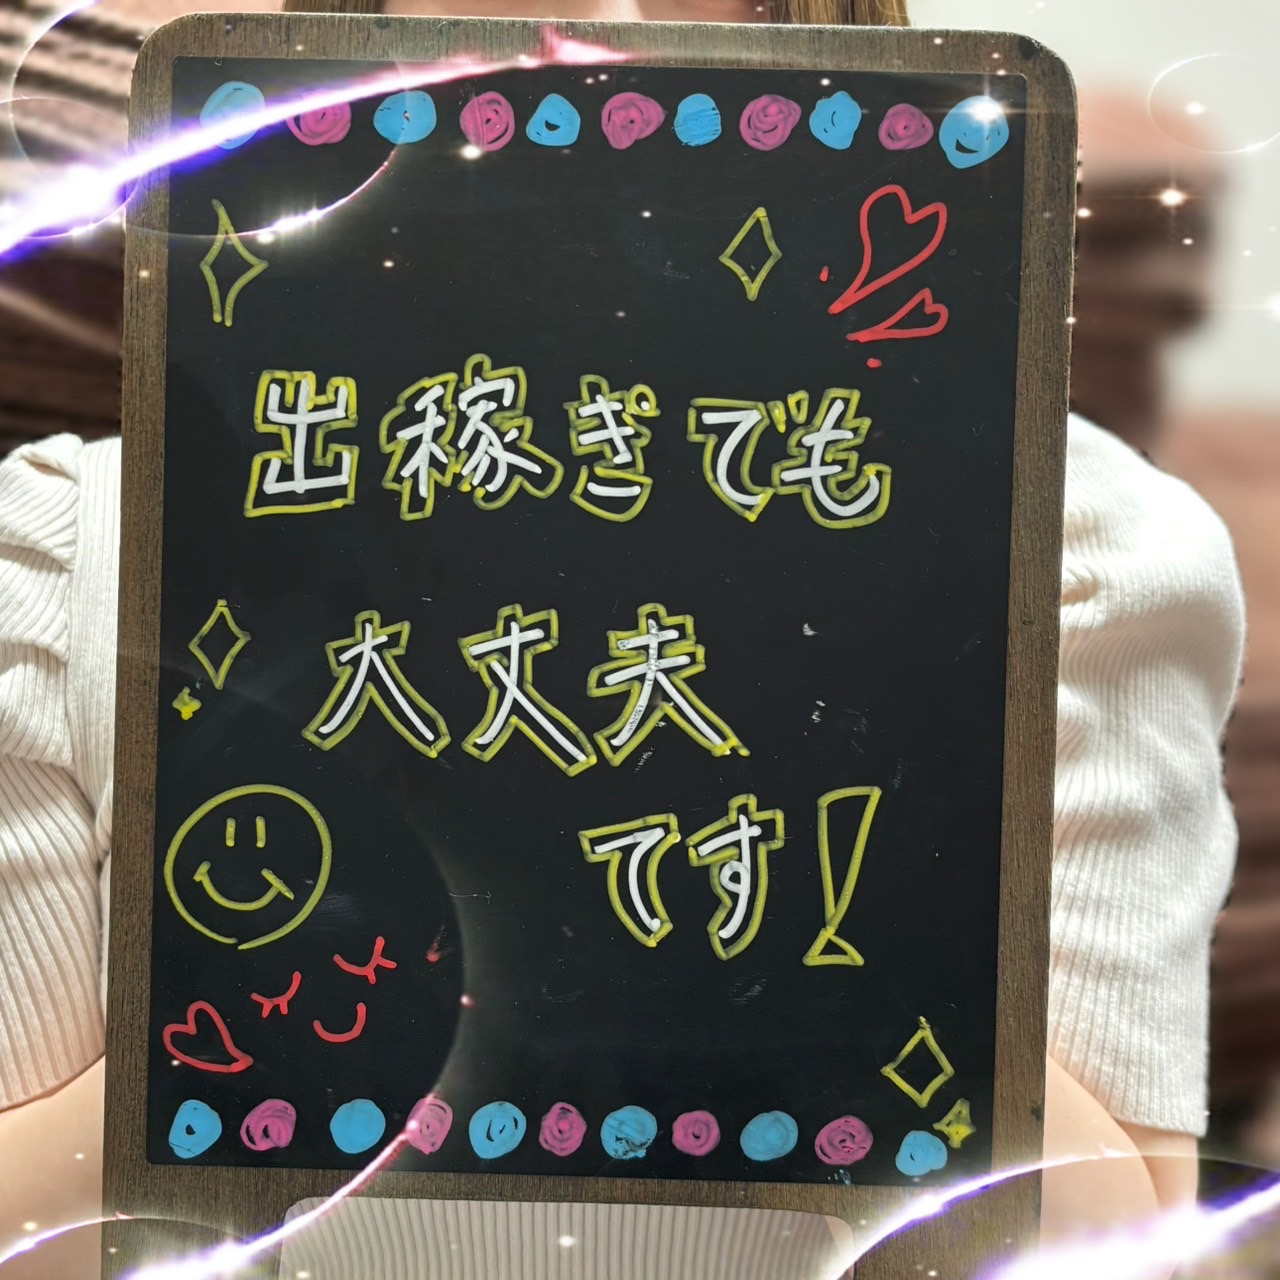 出稼ぎでも
大丈夫
です!